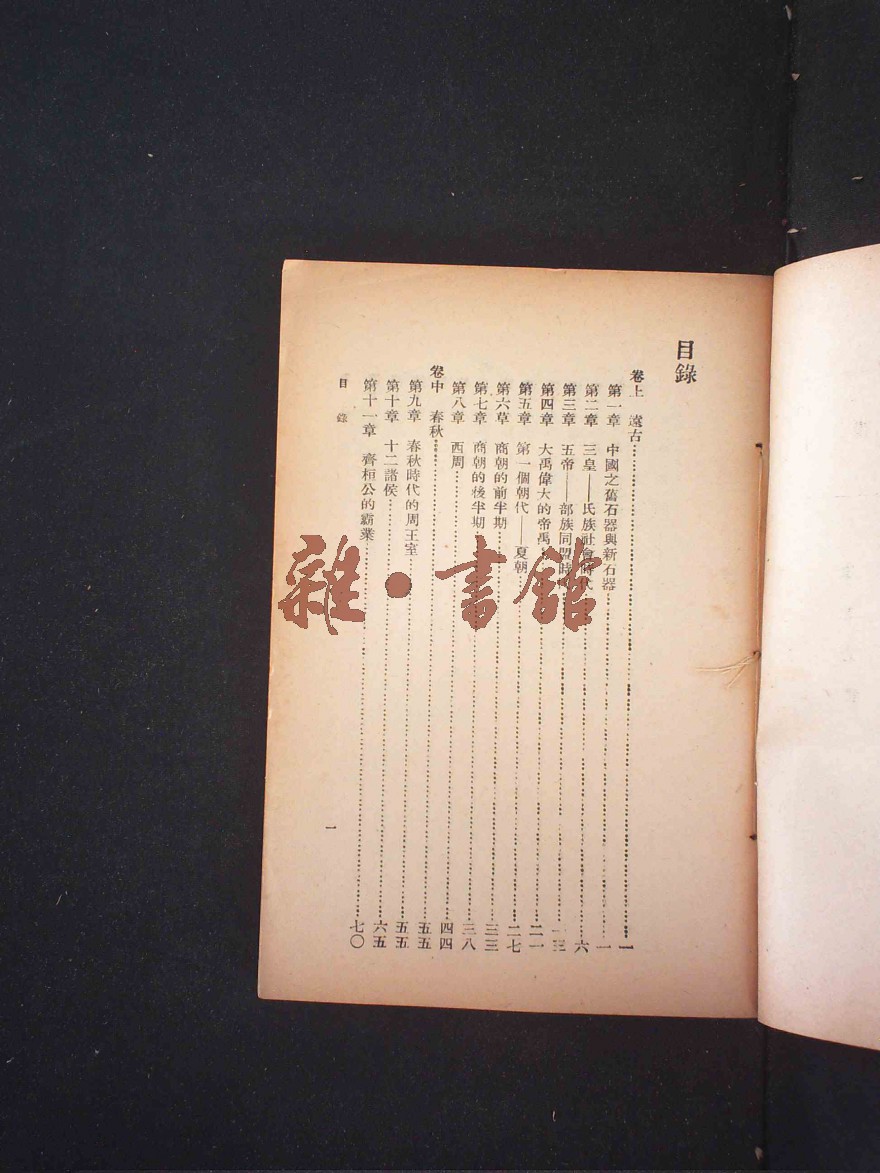 目錄
卷上 遠古 一
第一章 中國之舊石器與新石器 一
第二章 三皇——氏族社會時代 六
第三章 五帝——部族同盟時 一三
第四章 大禹偉大的帝禹 二一
第五章 第一個朝代——夏朝 二七
第六草 商朝的前半期 三三
第七章 商朝的後半期 三八
第八章 西周 四四
卷中 春秋 五五
第九章 春秋時代的周王室 五五
第十章 十二諸侯 六五
第十一章 齊桓公的霸業 七〇
目錄
一
雜·書館